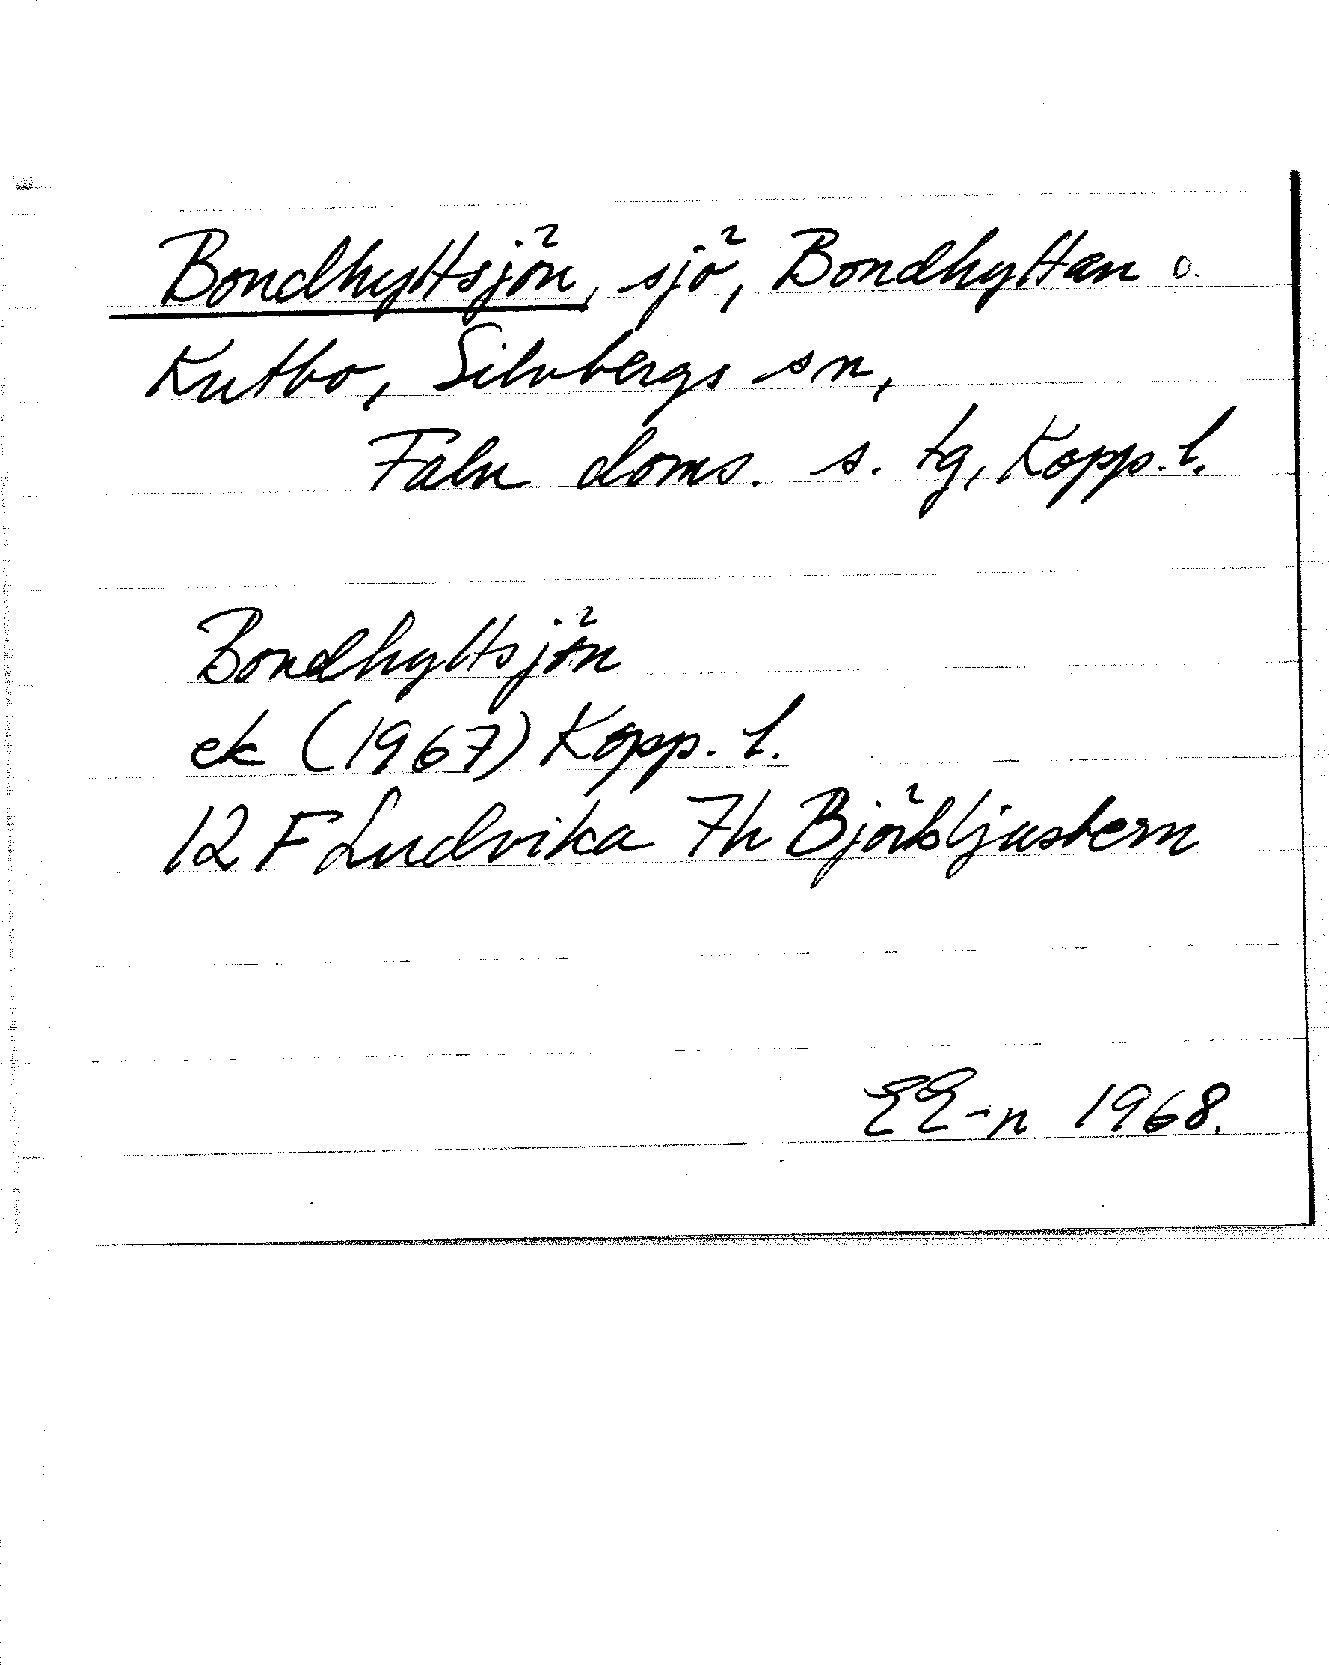 Bondhyttsjön, sjö, Bondhyttan o.
Kutbo, Silvbergs sn,
Falu doms. s. tg, Kopp. l.
Bondhyttsjön
ek (1967) Kopp. l.
12 F Ludvika 7h Björkljustern
EE-n 1968.